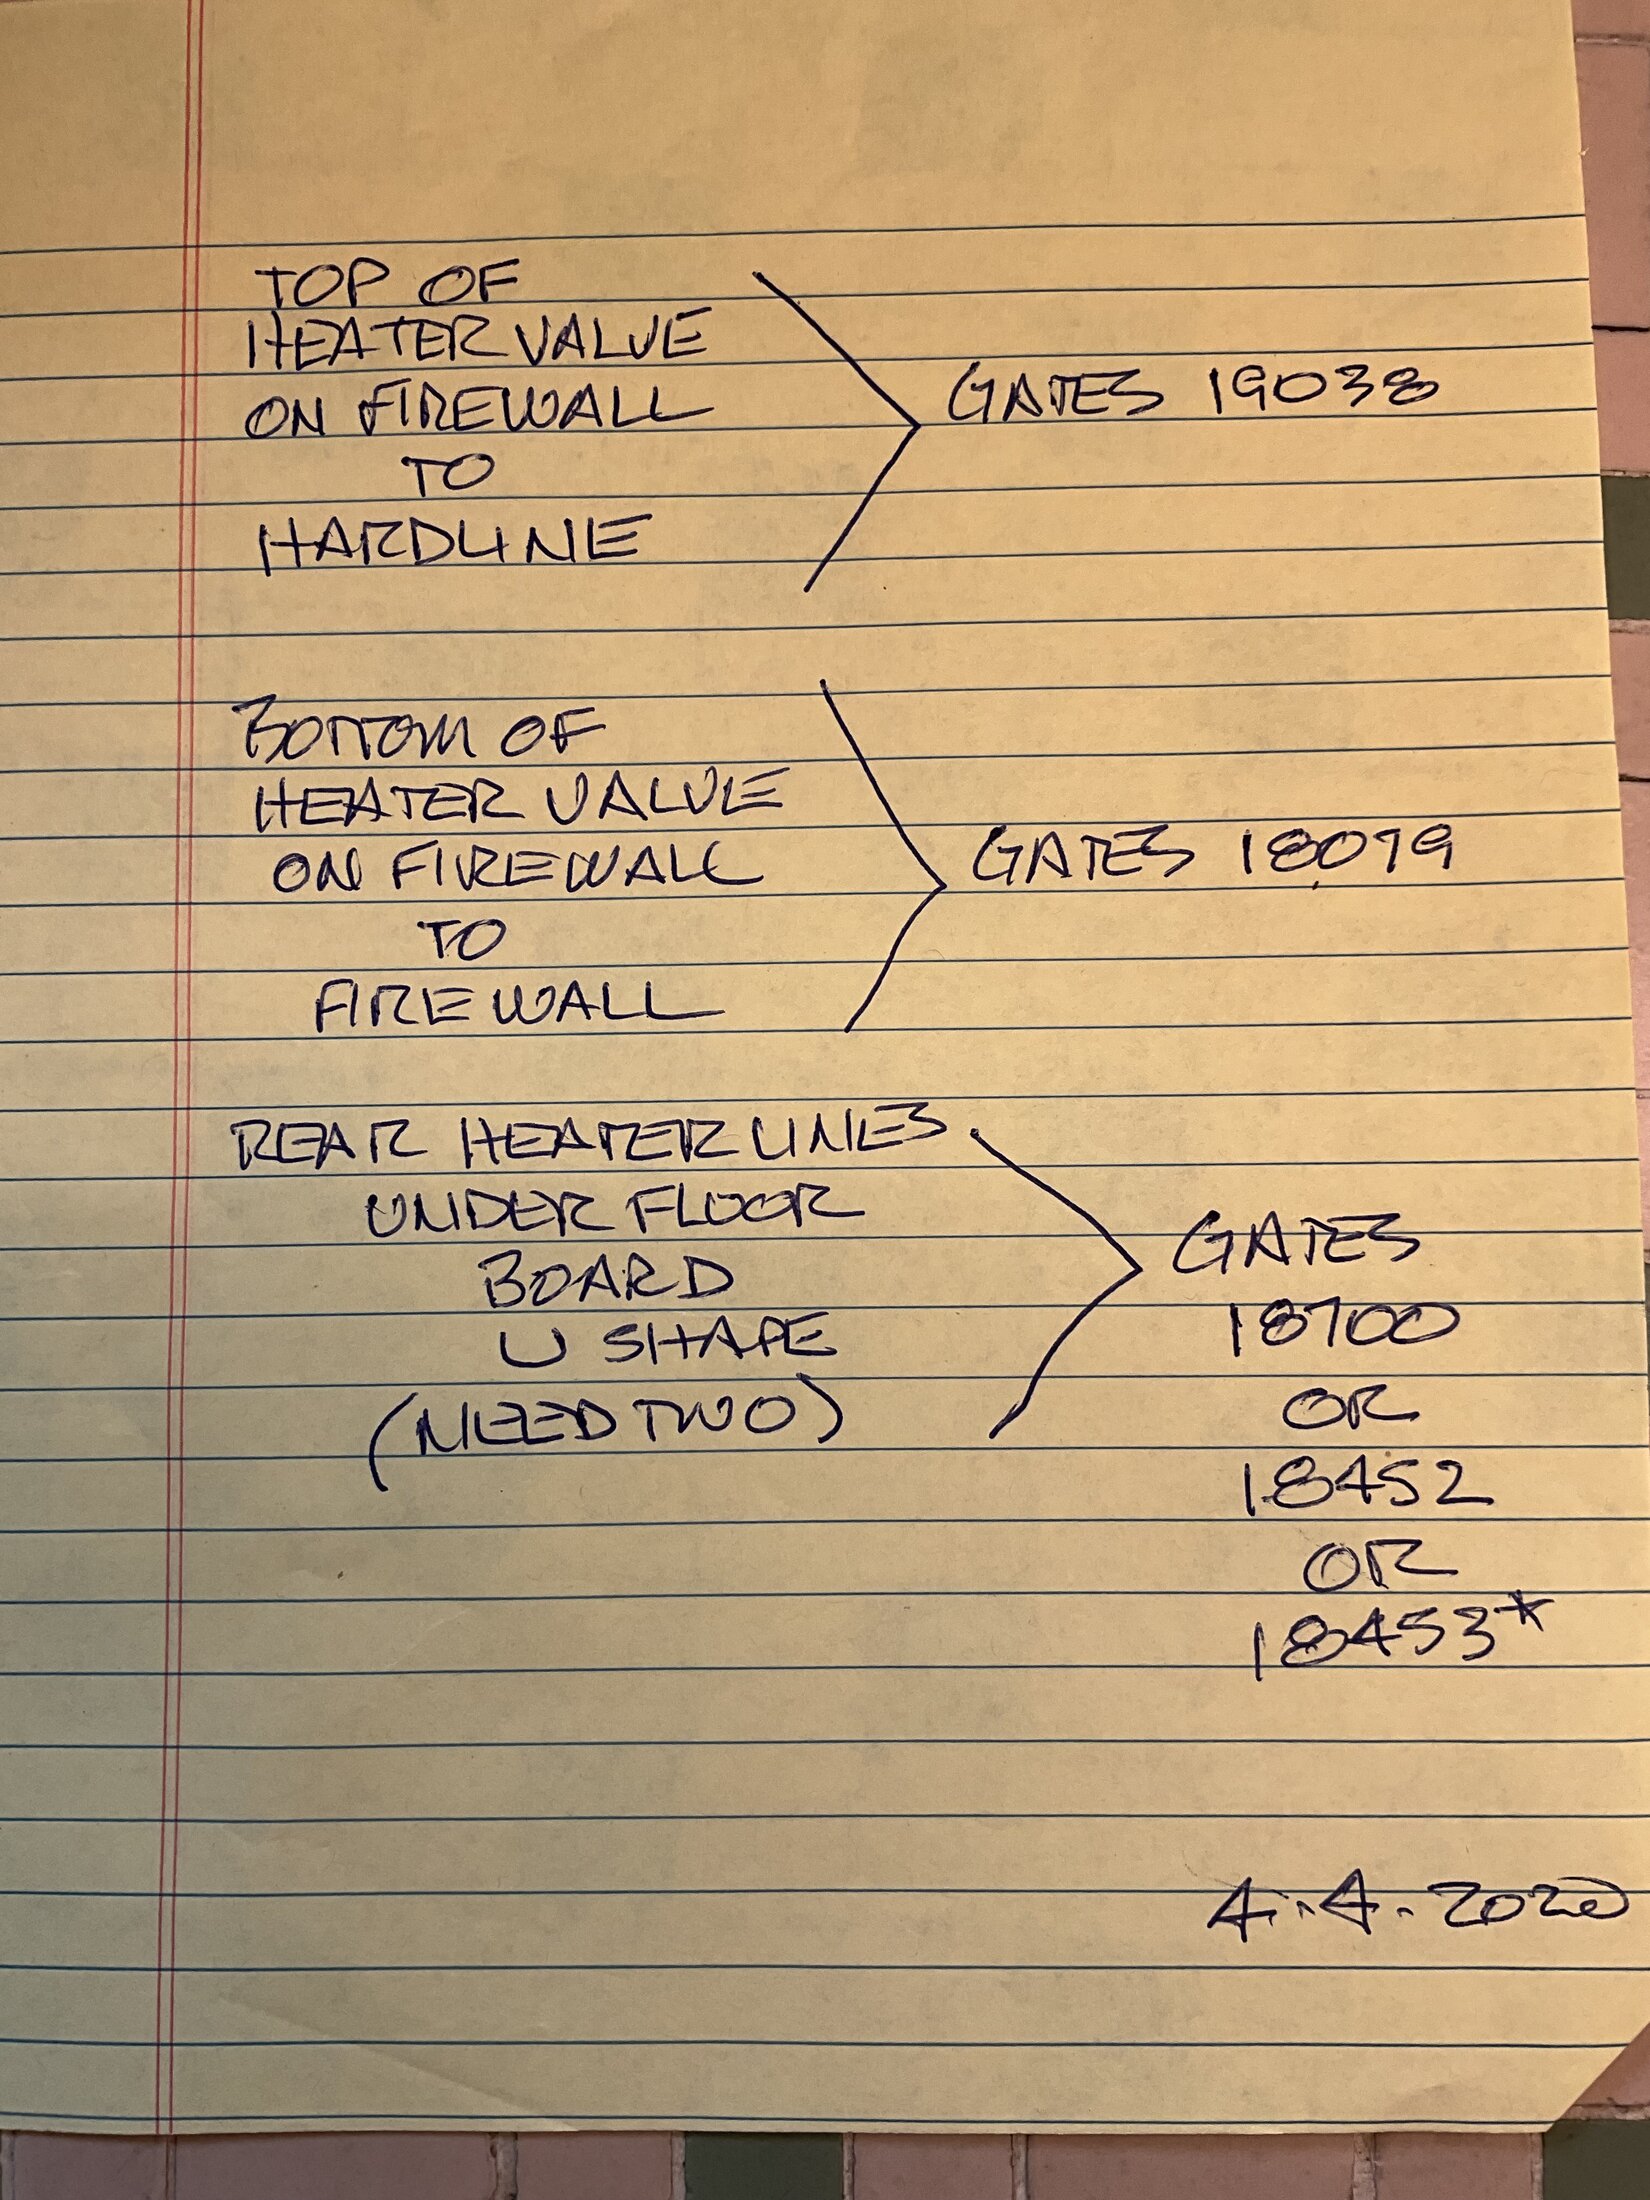 TOP OF
HEATER VALVE
ON FIREWALL
TO
HARDLINE
GATES 19038
BOTTOM OF
HEATER VALVE
ON FIREWALL
TO
FIREWALL
GATES 18079
REAR HEATER LINES
UNDER FLOOR
BOARD
U SHAPE
(NEED TWO)
GATES
18700
OR
18452
OR
18453*
A.A. 2020